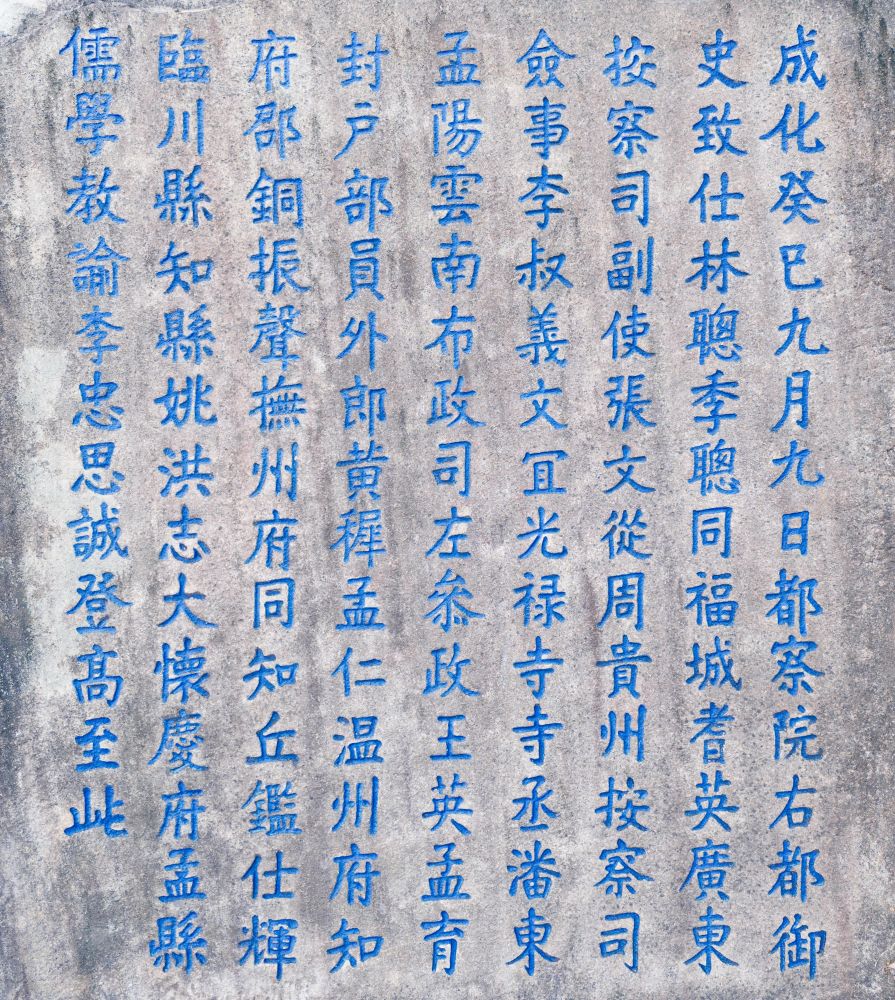 成化癸巳九月九日都察院右都御
史致仕林聰季聰同福城耆英廣東
按察司副使張文從周貴州按察司
僉事李叔義文冝光禄寺寺丞潘東
孟陽雲南布政司左叅政王英孟育
封户部員外郎黄穉孟仁温州府知
府郡銅振聲撫州府同知丘鑑仕輝
臨川縣知縣姚洪志大懷慶府孟縣
儒學教諭李忠思誠登髙至此